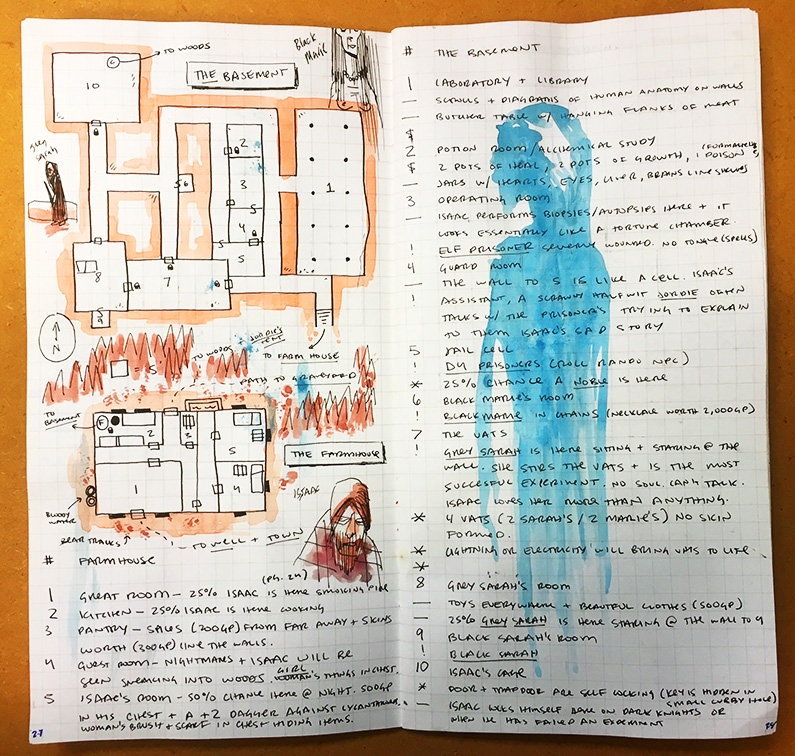 TO WOODS
Black Marie
THE BASEMENT
C
10
Grey Sarah
2
3
1
S6
S
4
S
5
8
7
S
9
N
TO WOODS + JORDIE'S TENT
TO FARM HOUSE
= 5'
PATH TO GRAVEYARD
TO BASEMENT
F
2
3
5
THE FARMHOUSE
1
4
ISAAC
BLOODY WATER
BEAR TRACKS
TO WELL + TOWN
# FARMHOUSE
(PG. 24)
1 GREAT ROOM - 25% ISAAC IS HERE SMOKING PIPE
2 KITCHEN - 25% ISAAC IS HERE COOKING
3 PANTRY - SPICES (200GP) FROM FAR AWAY + SKINS
WORTH (200GP) LINE THE WALLS.
4 GUEST ROOM - NIGHTMARES + ISAAC WILL BE
SEEN SNEAKING INTO WOODS. GIRL THINGS IN CHEST.
5 ISAAC'S ROOM - 50% CHANCE HERE @ NIGHT. 500GP
IN HIS CHEST + A +2 DAGGER AGAINST LYCANTHROPES.
WOMAN'S BRUSH + SCARF IN CHEST HIDING ITEMS.
27
# THE BASEMENT
1 LABORATORY + LIBRARY
— SCROLLS + DIAGRAMS OF HUMAN ANATOMY ON WALLS
— BUTCHER TABLE W/ HANGING FLANKS OF MEAT
$
2 POTION ROOM/ALCHEMICAL STUDY
$ 2 POTS OF HEAL, 2 POTS OF GROWTH, 1 POISON
— JARS W/ HEARTS, EYES, LIVER, BRAINS LINE SHELVES
3 OPERATING ROOM
— ISAAC PERFORMS BIOPSIES/AUTOPSIES HERE + IT
LOOKS ESSENTIALLY LIKE A TORTURE CHAMBER.
! ELF PRISONER SEVERELY WOUNDED. NO TONGUE (SPELLS)
4 GUARD ROOM
— THE WALL TO 5 IS LIKE A CELL. ISAAC'S
! ASSISTANT, A SCRAWNY HALFWIT JORDIE OFTEN
TALKS W/ THE PRISONERS TRYING TO EXPLAIN
TO THEM ISAAC'S SAD STORY
5 JAIL CELL
! D4 PRISONERS (ROLL RANDO NPC)
* 25% CHANCE A NOBLE IS HERE
6 BLACK MARIE'S ROOM
! BLACK MARIE IN CHAINS (NECKLACE WORTH 2,000GP)
7 THE VATS
! GREY SARAH IS HERE SITTING + STARING @ THE
WALL. SHE STIRS THE VATS + IS THE MOST
SUCCESSFUL EXPERIMENT. NO SOUL. CAN'T TALK.
ISAAC LOVES HER MORE THAN ANYTHING.
* 4 VATS (2 SARAH'S / 2 MARIE'S) NO SKIN
FORMED.
* LIGHTNING OR ELECTRICITY WILL BRING VATS TO LIFE
*
8 GREY SARAH'S ROOM
— TOYS EVERYWHERE + BEAUTIFUL CLOTHES (500GP)
— 25% GREY SARAH IS HERE STARING @ THE WALL TO 9
9 BLACK SARAH'S ROOM
! BLACK SARAH
10 ISAAC'S CAGE
* DOOR + TRAPDOOR ARE SELF LOCKING (KEY IS HIDDEN IN
— ISAAC LOCKS HIMSELF HERE ON DARK NIGHTS OR
WHEN HE HAS FAILED AN EXPERIMENT